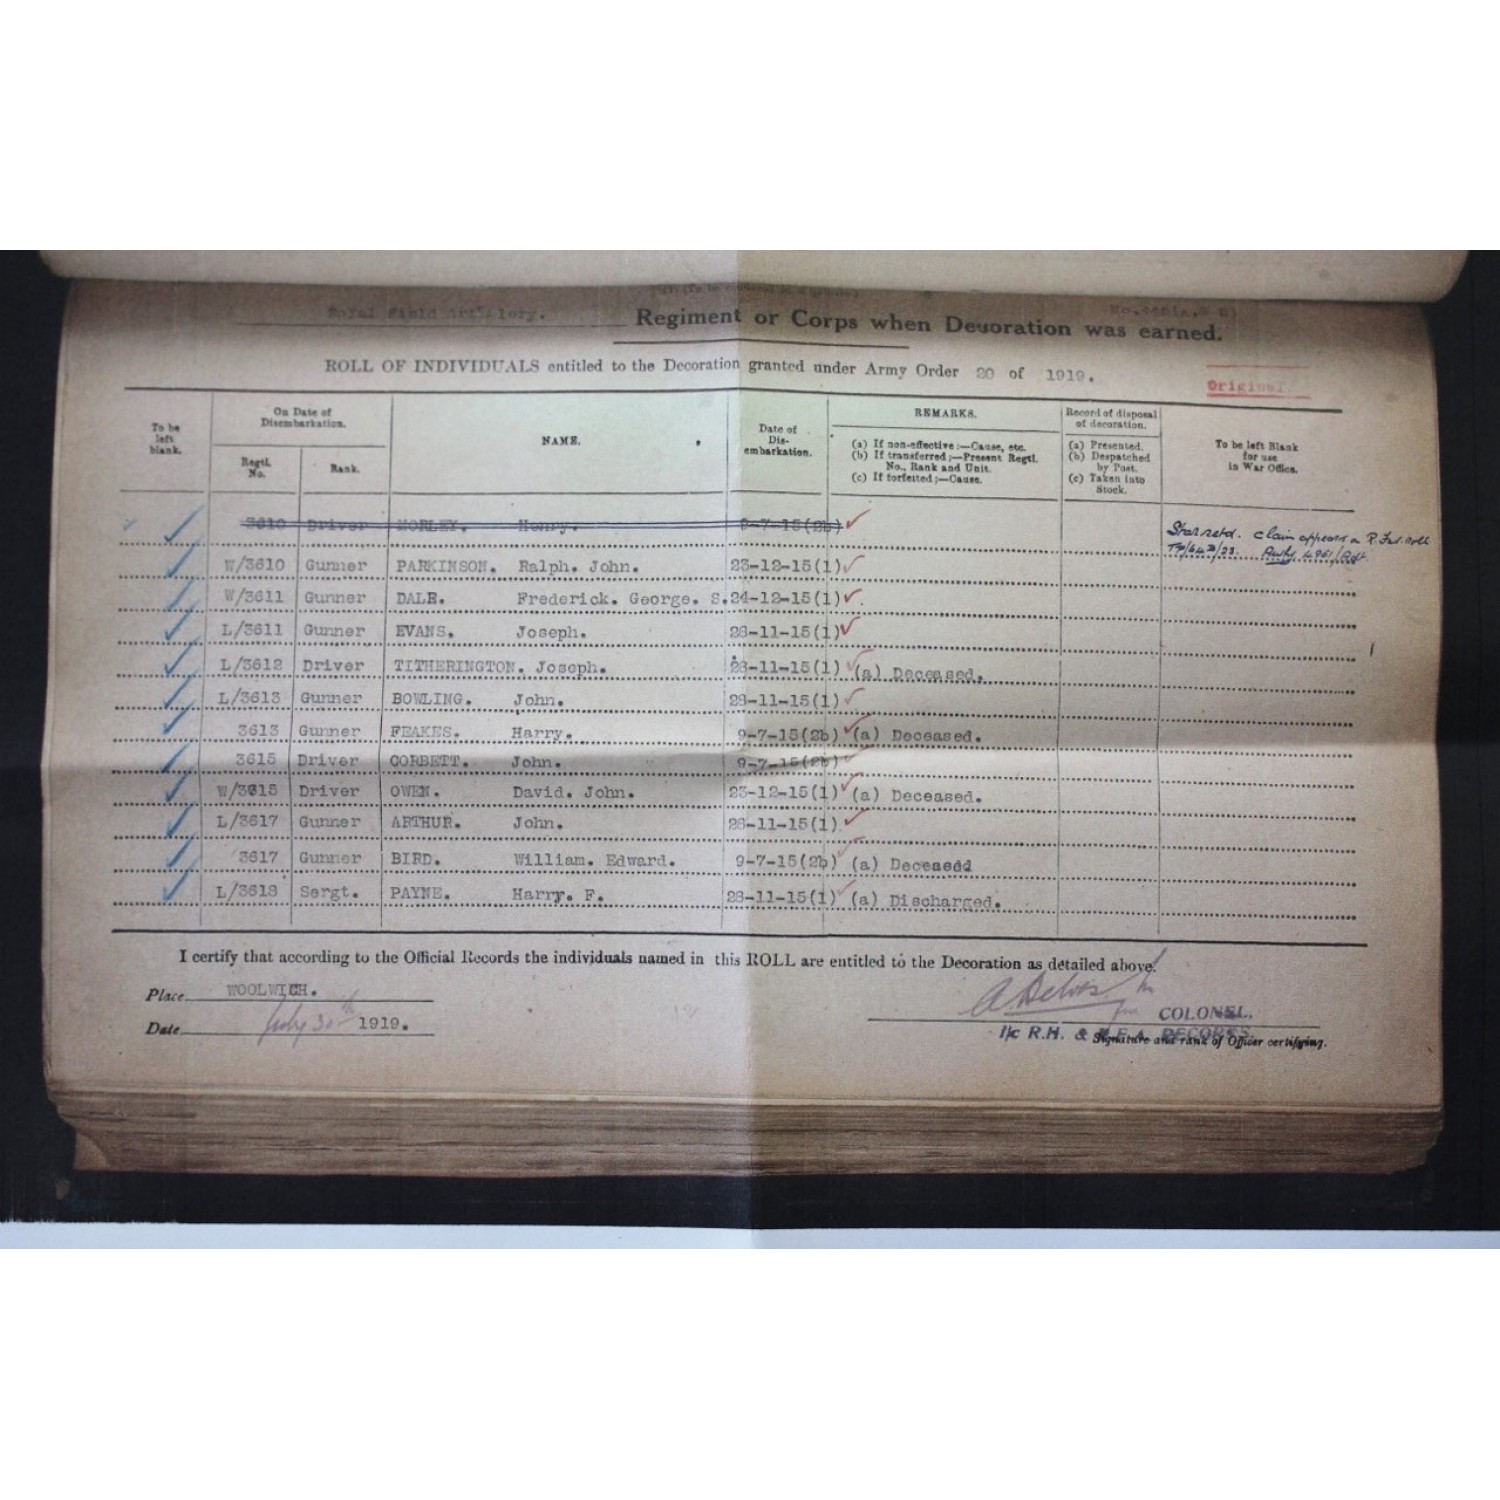 Royal Field Artillery. Regiment or Corps when Decoration was earned.
ROLL OF INDIVIDUALS entitled to the Decoration granted under Army Order 20 of 1919.
Original.
To be left blank.
On Date of Disembarkation.
Regtl. No.
Rank.
NAME.
Date of Dis-embarkation.
REMARKS.
(a) If non-effective:—Cause, etc.
(b) If transferred;—Present Regtl. No., Rank and Unit.
(c) If forfeited;—Cause.
Record of disposal of decoration.
(a) Presented.
(b) Despatched by Post.
(c) Taken into Stock.
To be left Blank for use in War Office.
3610 Driver MORLEY. Henry. 9-7-15(2b) Star retd. claim appears on R. Fus. roll
W/3610 Gunner PARKINSON. Ralph. John. 23-12-15(1)
W/3611 Gunner DALE. Frederick. George. S. 24-12-15(1)
L/3611 Gunner EVANS. Joseph. 28-11-15(1)
L/3612 Driver TITHERINGTON. Joseph. 28-11-15(1) (a) Deceased.
L/3613 Gunner BOWLING. John. 28-11-15(1)
3613 Gunner FEAKES. Harry. 9-7-15(2b) (a) Deceased.
3615 Driver CORBETT. John. 9-7-15(2b)
W/3615 Driver OWEN. David. John. 23-12-15(1) (a) Deceased.
L/3617 Gunner ARTHUR. John. 28-11-15(1)
3617 Gunner BIRD. William. Edward. 9-7-15(2b) (a) Deceased
L/3618 Sergt. PAYNE. Harry. F. 28-11-15(1) (a) Discharged.
I certify that according to the Official Records the individuals named in this ROLL are entitled to the Decoration as detailed above.
Place WOOLWICH.
Date July 30th 1919.
for COLONEL.
I/c R.H. & R.F.A. RECORDS.
Signature and rank of Officer certifying.